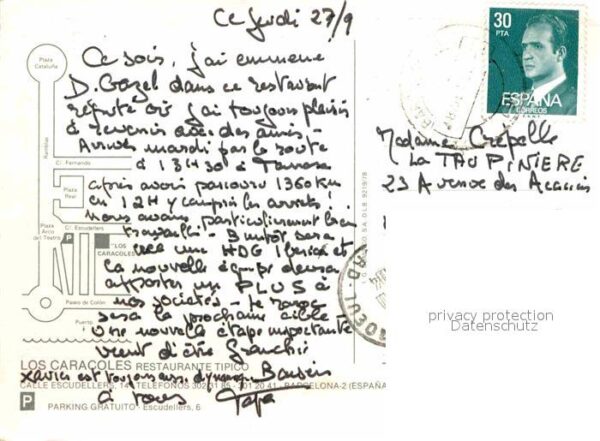 Ce Jeudi 27/9
Ce soir, j'ai emmené
D. Gazel dans ce restaurant
réputé où j'ai toujours plaisir
à revenir avec des amis. -
Arrivés mardi par la route
à 13H30 à
après avoir parcouru 1360 km
en 12H y compris les arrêts !
Nous avons particulièrement bien
travaillé - Bientôt sera
créé une HDG Iberica et
la nouvelle équipe devrait
apporter un PLUS à
nos sociétés - le
sera la prochaine cible !
Une nouvelle étape importante
vient d'être franchie
Xavier est toujours aussi dynamique Baisers
à tous Papa
30
PTA
ESPAÑA
CORREOS
Madame Crépelle
La TAUPINIERE
23 Avenue des Acacias
Plaza
Cataluña
Ramblas
C/. Fernando
Plaza
Real
Plaza
Arco
del Teatro
P
C/. Escudellers
"LOS
CARACOLES
Paseo de Colón
Puerto
LOS CARACOLES RESTAURANTE TIPICO
CALLE ESCUDELLERS, 14 - TELEFONOS 302 31 85 - 301 20 41 - BARCELONA-2 (ESPAÑA
P PARKING GRATUITO - Escudellers, 6
privacy protection
Datenschutz